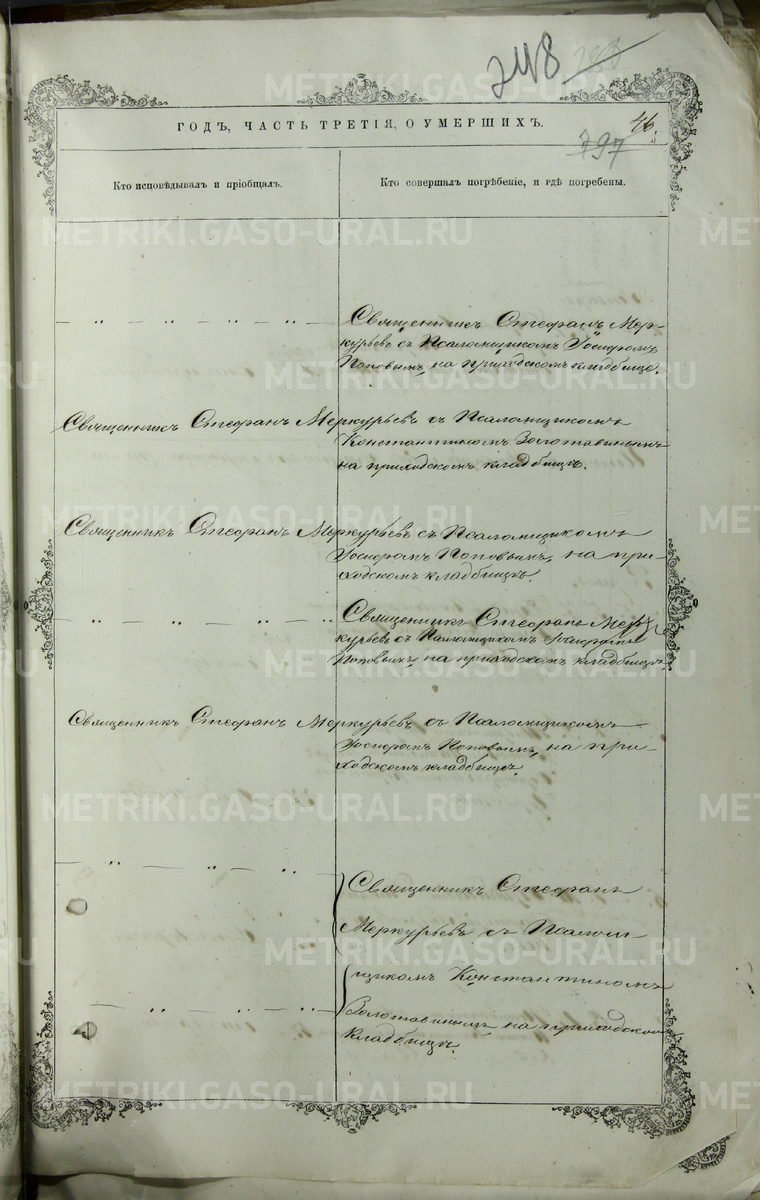 248
ГОДЪ, ЧАСТЬ ТРЕТІЯ, О УМЕРШИХЪ.
46.
797
Кто исповѣдывалъ и пріобщалъ.
Кто совершалъ погрѣбеніе, и гдѣ погребены.
Священникъ Стефанъ Мер-
курьевъ съ Псаломщикомъ Іосифомъ
Поповымъ, на приходскомъ кладбище.
Священникъ Стефанъ Меркурьевъ съ Псаломщикомъ
Константиномъ Золотавинымъ
на приходскомъ кладбищѣ.
Священникъ Стефанъ Меркурьевъ съ Псаломщикомъ
Іосифомъ Поповымъ, на при-
ходскомъ кладбищѣ.
Священникъ Стефанъ Мер-
курьевъ съ Псаломщикомъ Іосифомъ
Поповымъ, на приходскомъ кладбищѣ.
Священникъ Стефанъ Меркурьевъ съ Псаломщикомъ
Іосифомъ Поповымъ, на при-
ходскомъ кладбищѣ.
Священникъ Стефанъ
Меркурьевъ съ Псалом
щикомъ Константиномъ
Золотавинымъ, на приходском
кладбищѣ.
METRIKI.GASO-URAL.RU